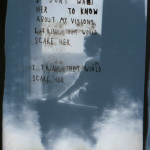 I DON'T WANT
HER TO KNOW
ABOUT MY VISIONS
I THINK THEY WOULD
SCARE HER
I THINK THEY WOULD
SCARE HER